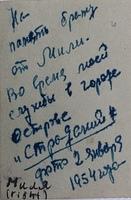 На
память брату
от Мили.
Во время моей
службы в городе
Острове
"Страдений"
фото 2 января
1954 года
Миля
(right)